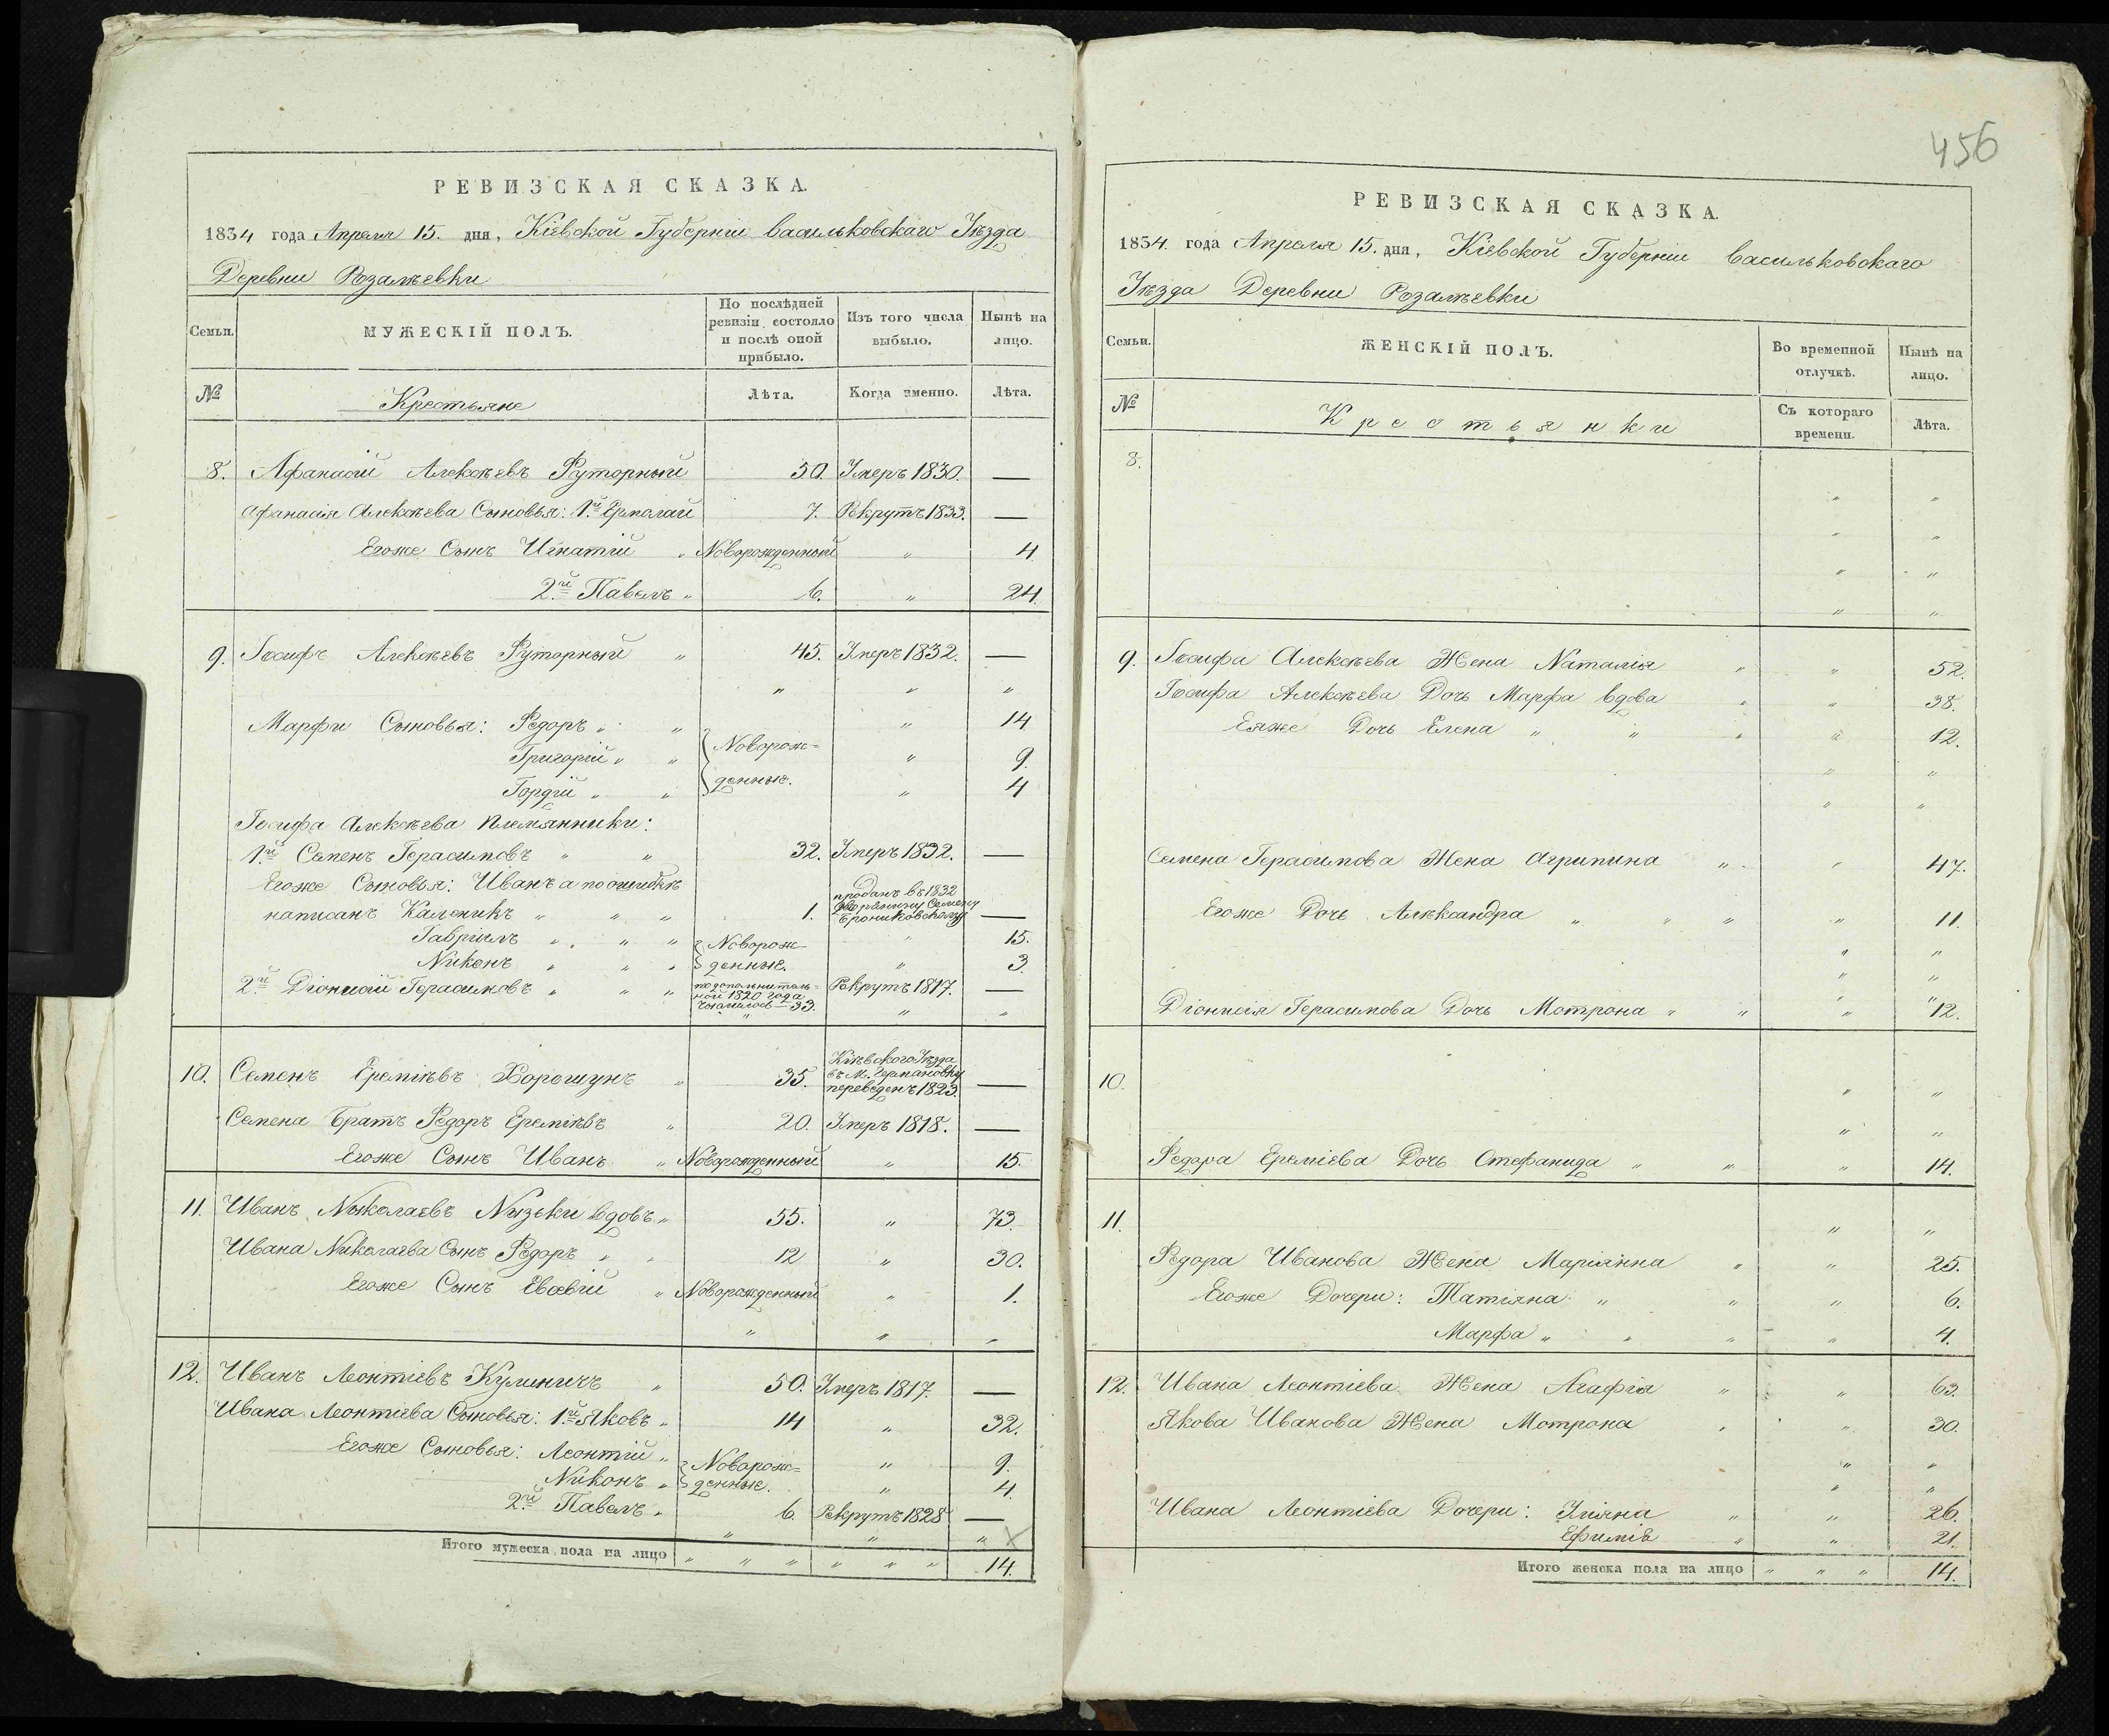 РЕВИЗСКАЯ СКАЗКА.
1834 года Апреля 15. дня, Кіевской Губерніи Васильковскаго Уѣзда
Деревни Розалѣевки
Семьи.
МУЖЕСКІЙ ПОЛЪ.
По послѣдней ревизіи состояло и послѣ оной прибыло.
Изъ того числа выбыло.
Нынѣ на лицо.
№
Крестьяне
Лѣта.
Когда именно.
Лѣта.
8. Афанасій Алексѣевъ Руторный 50. Умеръ 1830. —
Афанасія Алексѣева Сыновья: 1й Ермолай 7. Рекрутъ 1833. —
Егоже Сынъ Игнатій " Новорожденный " 4
2й Павелъ " 6. " 24.
9. Іосифъ Алексѣевъ Руторный " 45. Умеръ 1832. —
" " "
Марфи Сыновья: Ѳедоръ " " " 14
Григорій " " Новорож= " 9.
Гордій " " денные. " 4
Іосифа Алексѣева Племянники:
1й Семенъ Герасимовъ " " 32. Умеръ 1832. —
Егоже Сыновья: Иванъ а по ошибкѣ
написанъ Каленикъ " " " 1. проданъ въ 1832 дворянину Семену Брониковскому —
Гавріилъ " " " Новорож- " 15.
Никонъ " " " денные. " 3.
2й Діонисій Герасимовъ " " " по дополнитель=ной 1820 года числился — 33. Рекрутъ 1817. —
" " "
10. Семенъ Ереміѣвъ Хорошунъ " 35. Кіевского Уѣзда въ М. Германовку переведенъ 1823. —
Семена Братъ Ѳедоръ Ереміѣвъ " 20. Умеръ 1818. —
Егоже Сынъ Иванъ " Новорожденный " 15.
11. Иванъ Николаевъ Низьки вдовъ " 55. " 73.
Ивана Николаева Сынъ Ѳедоръ " " 12 " 30.
Егоже Сынъ Евсевій " Новорожденный " 1.
" " "
12. Иванъ Леонтіевъ Кулиничъ " 50. Умеръ 1817. —
Ивана Леонтіева Сыновья: 1й Яковъ " 14 " 32.
Егоже Сыновья: Леонтій " Новорож= " 9.
Никонъ " денные. " 4.
2й Павелъ " 6. Рекрутъ 1828 —
" " "
Итого мужеска пола на лицо " " " " " " 14.
456
РЕВИЗСКАЯ СКАЗКА.
1834. года Апреля 15. дня, Кіевской Губерніи Васильковскаго
Уѣзда Деревни Розалѣевки
Семьи.
ЖЕНСКІЙ ПОЛЪ.
Во временной отлучкѣ.
Нынѣ на лицо.
№
Крестьянки
Съ котораго времени.
Лѣта.
8.
" "
" "
" "
" "
9. Іосифа Алексѣева Жена Наталія " " 52.
Іосифа Алексѣева Дочь Марфа вдова " " 38.
Еяже Дочь Елена " " " " 12.
" "
" "
Семена Герасимова Жена Агрипина " " 47.
Егоже Дочь Александра " " " " 11.
" "
" "
" "
Діонисія Герасимова Дочь Мотрона " " " 12.
10.
" "
" "
Ѳедора Ереміева Дочь Стефанида " " " 14.
11.
" "
Ѳедора Иванова Жена Маріянна " " 25.
Егоже Дочери: Татіяна " " " 6.
Марфа " " " " 4.
12. Ивана Леонтіева Жена Агафія " " 63.
Якова Иванова Жена Мотрона " " 30.
" "
" "
Ивана Леонтіева Дочери: Уліяна " " 26.
Ефимія " " 21.
Итого женска пола на лицо " " " 14.